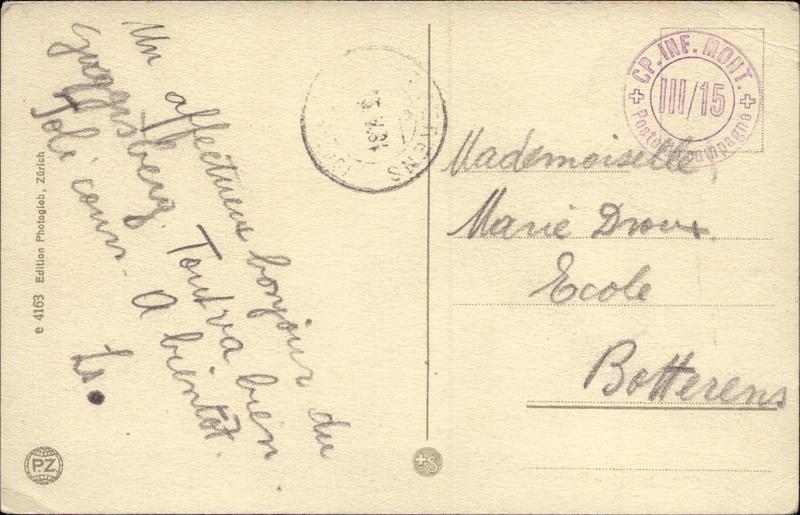 Un affectueux bonjour du
Guggisberg. Tout va bien.
Joli cours. A bientôt.
Ls.
e 4163 Edition Photoglob, Zürich
P.Z
CP. INF. MONT.
III/15
Mademoiselle
Marie Droux.
Ecole
Botterens
+S